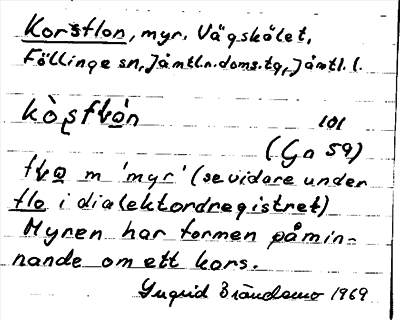 Korsflon, myr. Vägskälet,
Föllinge sn, Jämtl.n.doms.tg, Jämtl.l.
kò̀ʂfɫón
101
(Gn 59)
fɫo m 'myr' (se vidare under
flo i dialektordregistret)
Myren har formen påmin-
nande om ett kors.
Ingrid Brändemo 1969